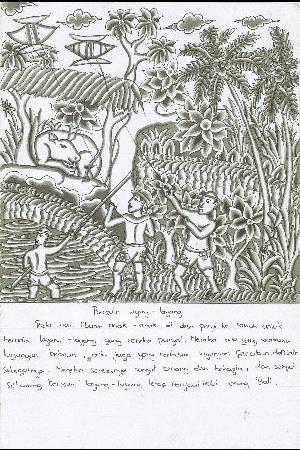 Bermain layang-layang
Pada hari libur anak-anak di desa pergi ke sawah untuk
bermain layang-layang yang mereka punyai. Mereka ada yang membawa
layangan bebean, ada juga yang membawa layangan
sebagainya. Mereka semuanya sangat senang dan bahagia, dan sampai
sekarang bermain layang-layang tetap menjadi hobi orang Bali.